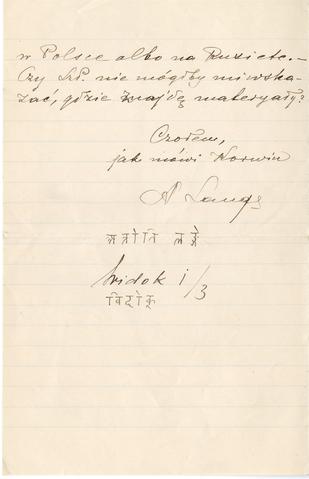 w Polsce albo na Kuziete.—
Czy Sz.P. nie mógłby mi wska-
zać, gdzie znajdę materyały?
Czołem,
jak mówi Korwin
A Lange
अ त्रोनि लङ्गे
Widok 1/3
विदोक्